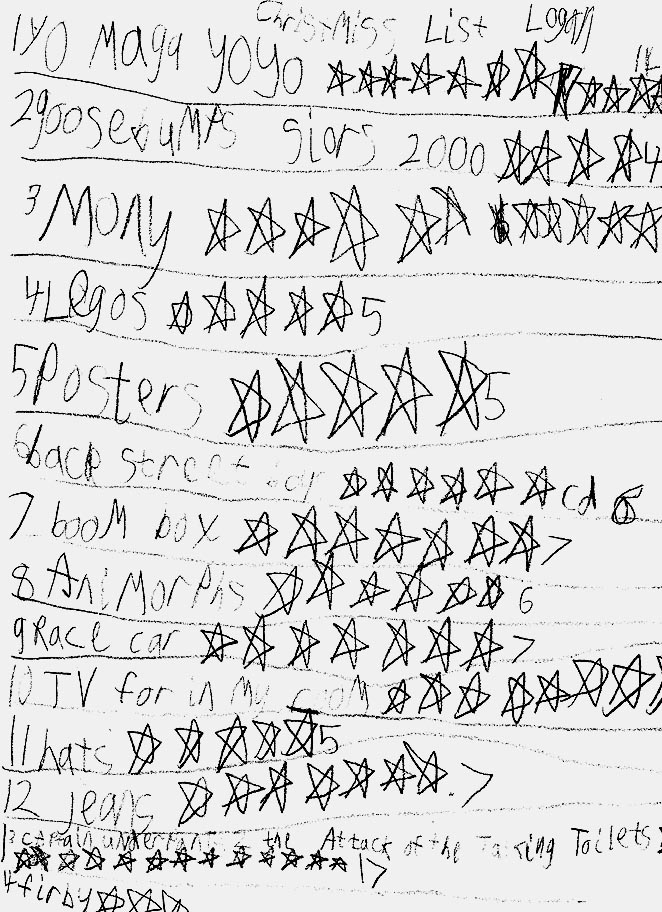 Christmiss List Logan
1 yo Maga yoyo
2 goosebumps 2000 4
3 Mony
4 Legos 5
5 Posters 5
6 back street cd 6
7 booM box 7
8 AniMorPhs 6
9 Race car 7
10 TV for in My rooM
11 hats 5
12 jeans 7
13 the Attack of the Toilets
17
firby